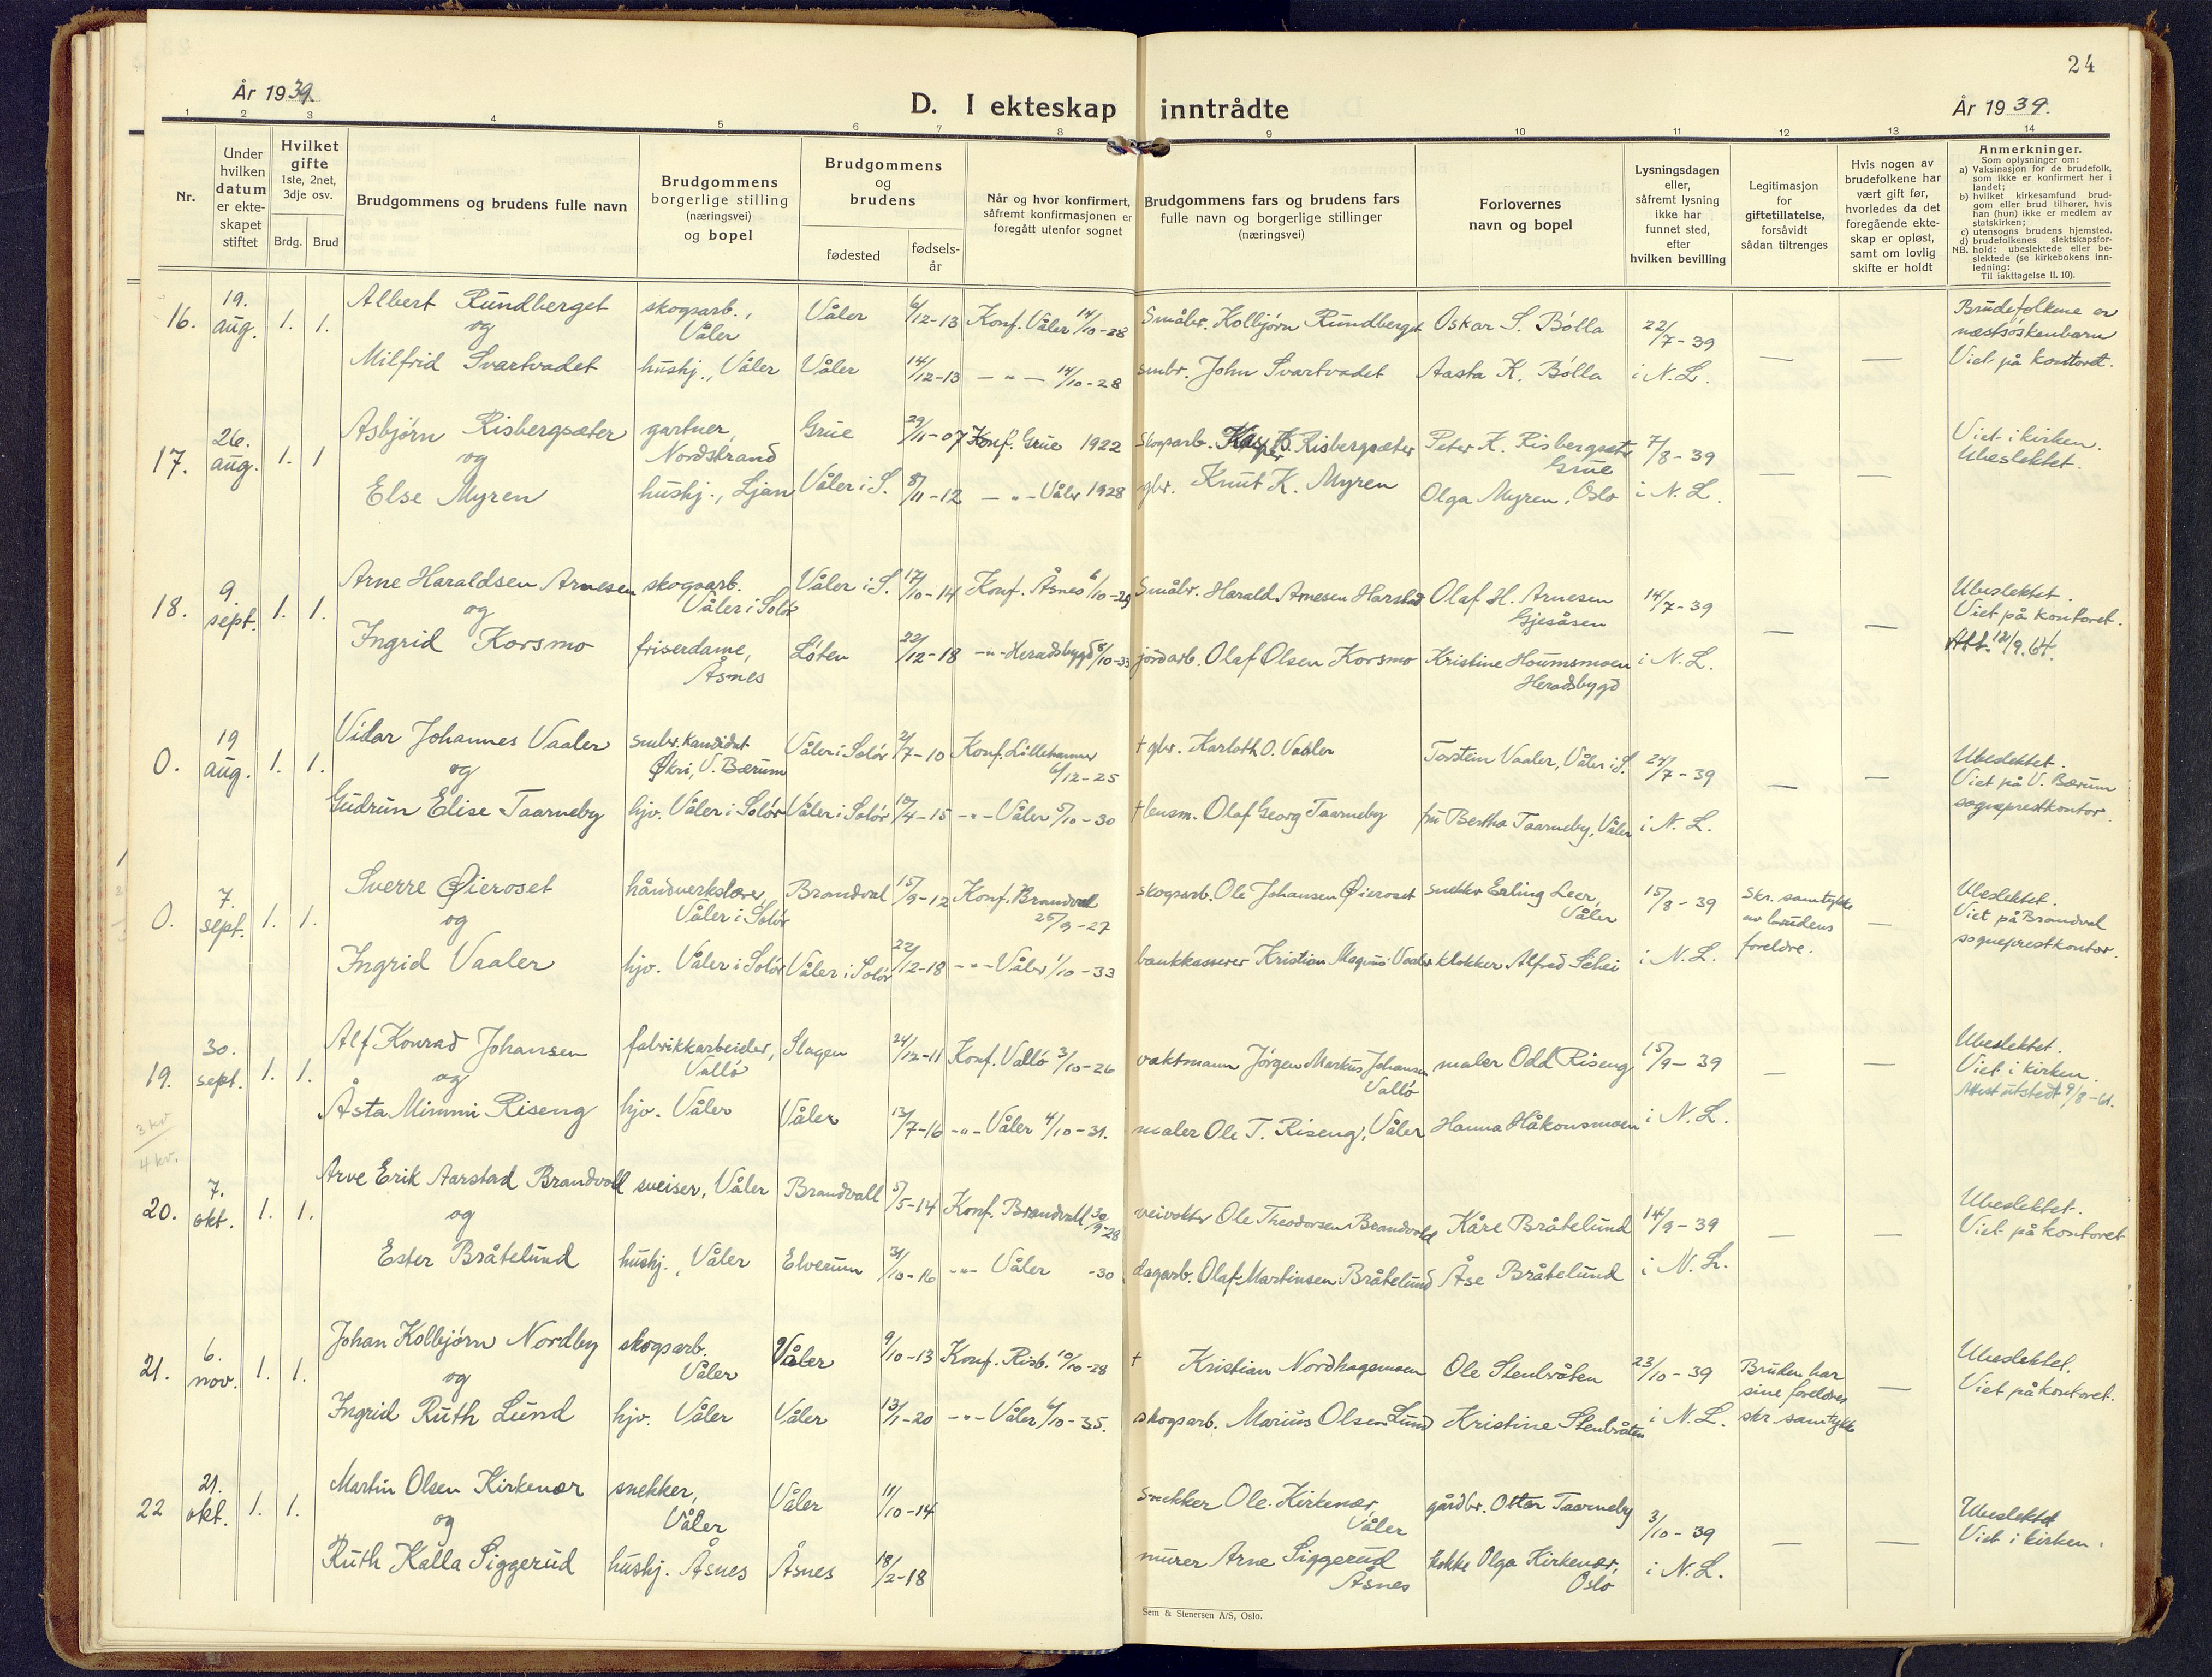 24
År 1939.
D. I ekteskap inntrådte
År 1939.
1 2 3 4 5 6 7 8 9 10 11 12 13 14
Nr.
Under hvilken datum er ekteskapet stiftet
Hvilket gifte 1ste, 2net, 3dje osv.
Brdg. Brud
Brudgommens og brudens fulle navn
Brudgommens borgerlige stilling (næringsvei) og bopel
Brudgommens og brudens
fødested
fødsels-år
Når og hvor konfirmert, såfremt konfirmasjonen er foregått utenfor sognet
Brudgommens fars og brudens fars fulle navn og borgerlige stillinger (næringsvei)
Forlovernes navn og bopel
Lysningsdagen eller, såfremt lysning ikke har funnet sted, efter hvilken bevilling
Legitimasjon for giftetillatelse, forsåvidt sådan tiltrenges
Hvis nogen av brudefolkene har vært gift før, hvorledes da det foregående ekteskap er opløst, samt om lovlig skifte er holdt
Anmerkninger.
Som oplysninger om:
a) Vaksinasjon for de brudefolk, som ikke er konfirmert her i landet;
b) hvilket kirkesamfund brudgom eller brud tilhører, hvis han (hun) ikke er medlem av statskirken;
c) utensogns brudens hjemsted.
d) brudefolkenes slektskapsforhold: ubeslektede eller beslektede (se kirkebokens innledning:
NB. Til iakttagelse II. 10).
16. 19. aug. 1. 1. Albert Rundberget skogsarb., Våler Våler 6/12-13 Konf. Våler 14/10-28 Småbr. Kolbjørn Rundberget Oskar S. Bölla 22/7-39 Brudefolkene er næstsøskenbarn
og
Milfrid Svartvadet hushj., Våler Våler 14/12-13 — " — 14/10-28 smbr. John Svartvadet Aasta K. Bölla i N.L. — — Viet på kontoret.
17. 26. aug. 1. 1 Asbjørn Risbergsæter gartner, Nordstrand Grue 29/11-07 Konf. Grue 1922 Skogsarb. Kasper B. Risbergsæter Peter K. Risbergsæter Grue 7/8-39 Viet i kirken.
og
Else Myren hushj., Ljan Våler i S. 8/11-12 — " — Våler 1928 gbr. Knut K. Myren Olga Myren, Oslo i N.L. — — Ubeslektet.
18. 9. sept. 1. 1. Arne Haraldsen Arnesen skogsarb. Våler i Solør Våler i S. 17/10-14 Konf. Åsnes 6/10-29 Småbr. Harald Arnesen Harstad Olaf H. Arnesen Gjesåsen 14/7-39 Ubeslektet. Viet på kontoret.
og
Ingrid Korsmo friserdame, Åsnes Löten 22/12-18 -"- Heradsbygd 8/10-33 jordarb. Olaf Olsen Korsmo Kristine Houmsmoen Heradsbygd i N.L. — — Att. 12/9.64.
0. 19 aug. 1. 1. Vidar Johannes Vaaler smbr. kandidat Økri, V. Bærum Våler i Solör 2/7-10 Konf. Lillehammer 6/12-25 † gbr. Karloth O. Vaaler Torstein Vaaler, Våler i S. 24/7-39 Ubeslektet.
og
Gudrun Elise Taarneby hjv. Våler i Solör Våler i Solör 10/4-15 -"- Våler 5/10-30 † lensm. Olaf Georg Taarneby fru Bertha Taarneby, Våler i N.L. — — Viet på V. Bærum sogneprestkontor.
0. 7. sept. 1. 1. Sverre Øieroset håndverkslærer, Våler i Solör Brandval 15/9-12 Konf. Brandval 25/9-27 skogsarb. Ole Johansen Øieroset snekker Erling Leer, Våler 15/8-39 Skr. samtykke av brudens foreldre. Ubeslektet.
og
Ingrid Vaaler hjv. Våler i Solör Våler i Solör 22/12-18 -"- Våler 1/10-33 bankkasserer Kristian Magnus Vaaler klokker Alfred Schei i N.L. — Viet på Brandval sogneprestkontor.
19. 30. sept. 1. 1. Alf Konrad Johansen fabrikkarbeider, Vallö Slagen 24/12-11 Konf. Vallö 3/10-26 vaktmann Jörgen Markus Johansen Vallö maler Odd Riseng 15/9-39 Ubeslektet. Viet i kirken.
og
Åsta Mimmi Riseng hjv. Våler Våler 13/7-16 -"- Våler 4/10-31. maler Ole T. Riseng, Våler Hanna Håkonsmoen i N.L. — — Attest utstedt 9/8-61.
3 kv
4 kv.
20. 7. okt. 1. 1. Arve Erik Aarstad Brandvold sveiser, Våler Brandvall 5/5-14 Konf. Brandvall 30/9-28 veivokter Ole Theodorsen Brandvold Kåre Bråtelund 14/9-39 Ubeslektet.
og
Ester Bråtelund hushj., Våler Elverum 31/10-16 -"- Våler -30 dagarb. Olaf Martinsen Bråtelund Åse Bråtelund i N.L. — — Viet på kontoret
21. 6. nov. 1. 1. Johan Kolbjørn Nordby skogsarb. Våler Våler 9/10-13 Konf. Risb. 10/10-28 † Kristian Nordhagemoen Ole Stenbråten 23/10-39 Bruden har sine foreldres skr. samtykke Ubeslektet.
og
Ingrid Ruth Lund hjv. Våler Våler 13/1-20 -"- Våler 6/10-35. skogsarb. Marius Olsen Lund Kristine Stenbråten i N.L. — Viet på kontoret.
22 21. okt. 1. 1. Martin Olsen Kirkenær snekker, Våler Våler 11/10-14 Snekker Ole Kirkenær, Våler gårdbr. Otter Taarneby 3/10-39 Ubeslektet
og
Ruth Kalla Siggerud hushj. Åsnes Åsnes 18/2-18 murer Arne Siggerud Åsnes kokke Olga Kirkenær, Oslo i N.L. — — Viet i kirken.
Sem & Stenersen A/S, Oslo.